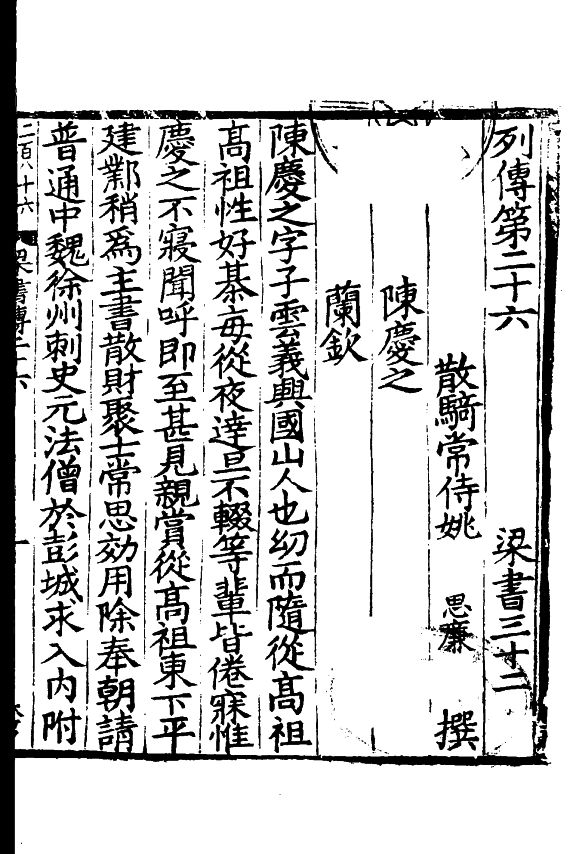 列傳第二十六 梁書三十二
散騎常侍姚 思廉 撰
陳慶之
蘭欽
陳慶之字子雲義興國山人也幼而隨從髙祖
髙祖性好綦毎從夜達旦不輟等輩皆倦寐惟
慶之不寢聞呼即至甚見親賞從髙祖東下平
建鄴稍爲主書散財聚士常思効用除奉朝請
普通中魏徐州刺史元法僧於彭城求入内附
二百八十六 梁書傳二十六 一